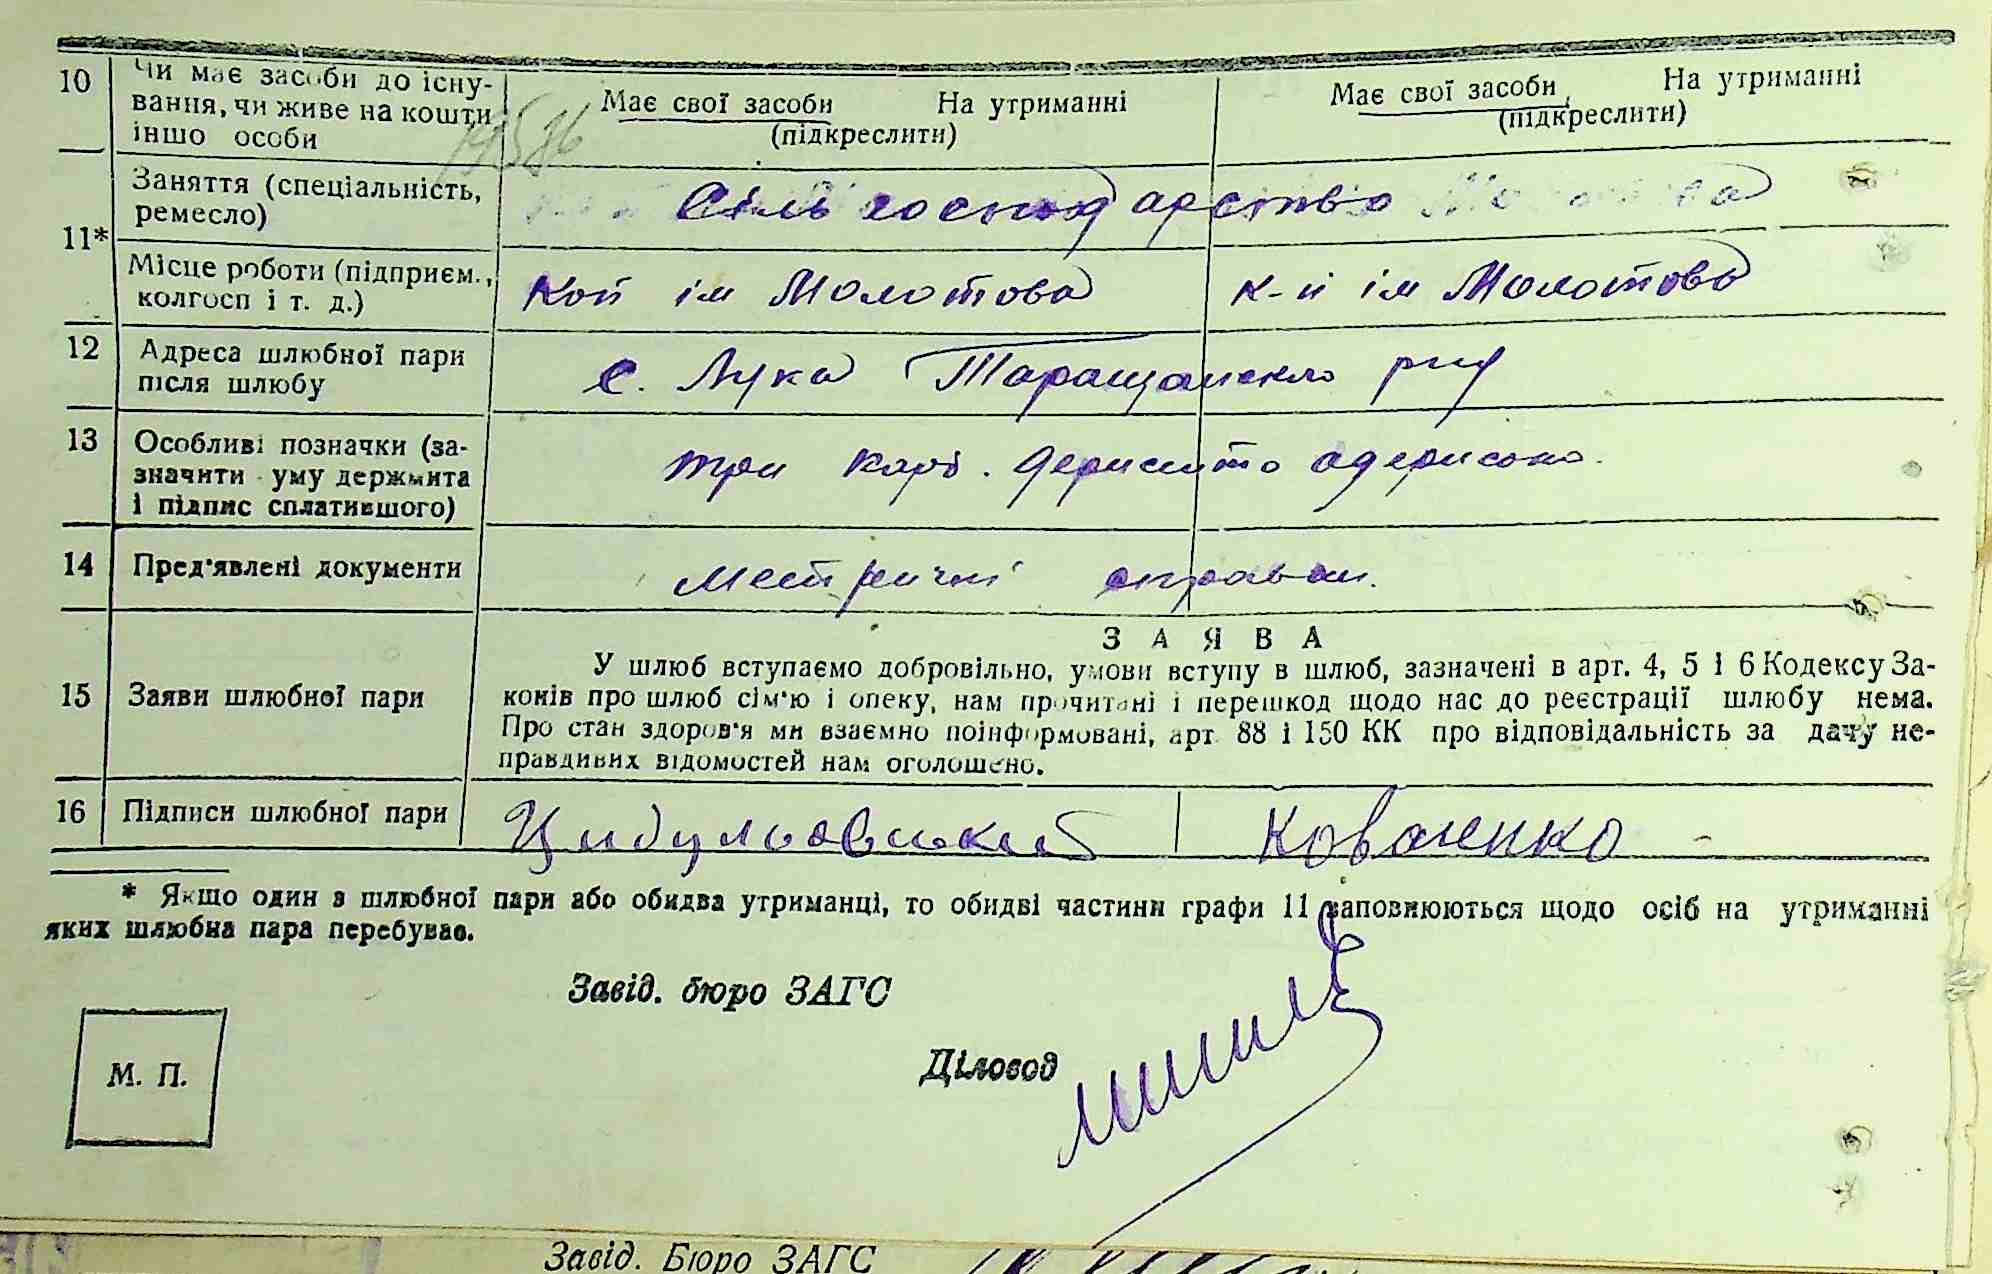 10 Чи має засоби до існу-
вання, чи живе на кошти
іншо особи
Має свої засоби На утриманні
(підкреслити)
Має свої засоби На утриманні
(підкреслити)
19576
11*
Заняття (спеціальність,
ремесло)
Сіль господарство
Місце роботи (підприєм.,
колгосп і т. д.)
Кол ім Молотова
к-п ім Молотова
12 Адреса шлюбної пари
після шлюбу
с. Лука Таращанского р-ну
13 Особливі позначки (за-
значити уму держмита
і підпис сплатившого)
три карб. держмито одержано.
14 Пред'явлені документи
Метричні справки.
15 Заяви шлюбної пари
ЗАЯВА
У шлюб вступаємо добровільно, умови вступу в шлюб, зазначені в арт. 4, 5 і 6 Кодексу За-
конів про шлюб сім'ю і опеку, нам прочитані і перешкод щодо нас до реєстрації шлюбу нема.
Про стан здоров'я ми взаємно поінформовані, арт. 88 і 150 КК про відповідальність за дачу не-
правдивих відомостей нам оголошено.
16 Підписи шлюбної пари
Цибульовський
Коваленко
* Якщо один з шлюбної пари або обидва утриманці, то обидві частини графи 11 заповнюються щодо осіб на утриманні
яких шлюбна пара перебуває.
Завід. бюро ЗАГС
Діловод
М. П.
Завід. Бюро ЗАГС